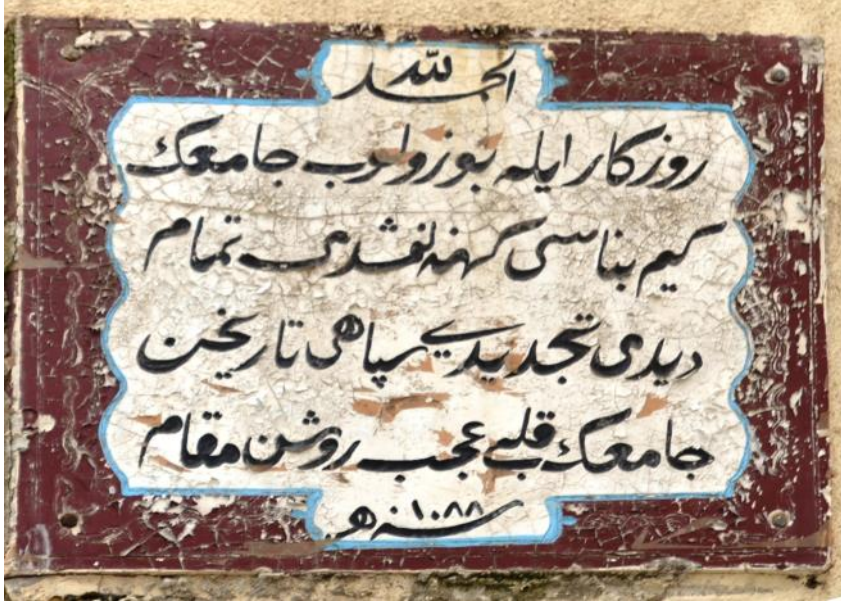 الحمد لله
روزكار ايله بوزولوب جامعك
كيم بناسى كهنه لنمشدى تمام
ديدى تجديدى سپاهى تاريخن
جامعك قلبى عجب روشن مقام
سنه ١٠٨٨